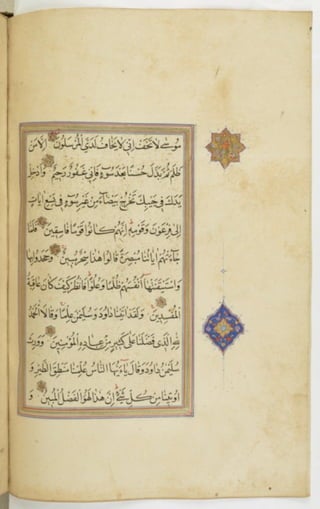 مُوسَىٰ لَا تَخَفْ إِنِّي لَا يَخَافُ لَدَيَّ الْمُرْسَلُونَ إِلَّا مَنْ
ظَلَمَ ثُمَّ بَدَّلَ حُسْنًا بَعْدَ سُوءٍ فَإِنِّي غَفُورٌ رَحِيمٌ وَأَدْخِلْ
يَدَكَ فِي جَيْبِكَ تَخْرُجْ بَيْضَاءَ مِنْ غَيْرِ سُوءٍ فِي تِسْعِ آيَاتٍ
إِلَىٰ فِرْعَوْنَ وَقَوْمِهِ إِنَّهُمْ كَانُوا قَوْمًا فَاسِقِينَ فَلَمَّا
جَاءَتْهُمْ آيَاتُنَا مُبْصِرَةً قَالُوا هَٰذَا سِحْرٌ مُبِينٌ وَجَحَدُوا بِهَا
وَاسْتَيْقَنَتْهَا أَنْفُسُهُمْ ظُلْمًا وَعُلُوًّا فَانْظُرْ كَيْفَ كَانَ عَاقِبَةُ
الْمُفْسِدِينَ وَلَقَدْ آتَيْنَا دَاوُدَ وَسُلَيْمَٰنَ عِلْمًا وَقَالَا الْحَمْدُ
لِلَّهِ الَّذِي فَضَّلَنَا عَلَىٰ كَثِيرٍ مِنْ عِبَادِهِ الْمُؤْمِنِينَ وَوَرِثَ
سُلَيْمَٰنُ دَاوُدَ وَقَالَ يَا أَيُّهَا النَّاسُ عُلِّمْنَا مَنْطِقَ الطَّيْرِ وَ
أُوتِينَا مِنْ كُلِّ شَيْءٍ إِنَّ هَٰذَا لَهُوَ الْفَضْلُ الْمُبِينُ وَ